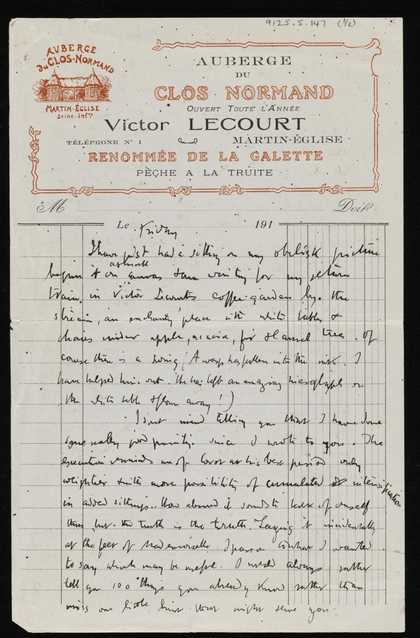 9125.5.147 (1/2)
AUBERGE
DU CLOS-NORMAND
MARTIN-ÉGLISE
Seine-Infre
AUBERGE
DU
CLOS NORMAND
OUVERT TOUTE L'ANNÉE
VICTOR LECOURT
TÉLÉPHONE N° 1 MARTIN-ÉGLISE
RENOMMÉE DE LA GALETTE
PÊCHE A LA TRUITE
M Doit
Le Friday 191
I have just had a sitting on my picture
begun it on canvas & am waiting for my return
train, in Victor Lecourt's coffee garden by the
stream, an enchanting place with white tables &
chairs under apple, acacia, fir & laurel trees. Of
course there is a swing! A wasp has fallen into the ink. I
have helped him out. He has left an amazing on
the white table & flown away!)
I don't mind telling you that I have done
some really good since I wrote to you. The
execution reminds me of Corot at his best period only
weightier with more possibility of cumulated intensification
in added sittings. How absurd it sounds to talk of oneself
thus, but the truth is the truth. Laying it incidentally
at the feet of I pass on to what I wanted
to say which may be useful. I would always rather
tell you 100 things you already know rather than
miss one little hint that might serve you